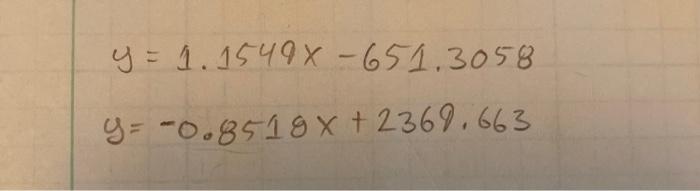 y = 1.1549x - 651.3058
y = -0.8519x + 2369.663